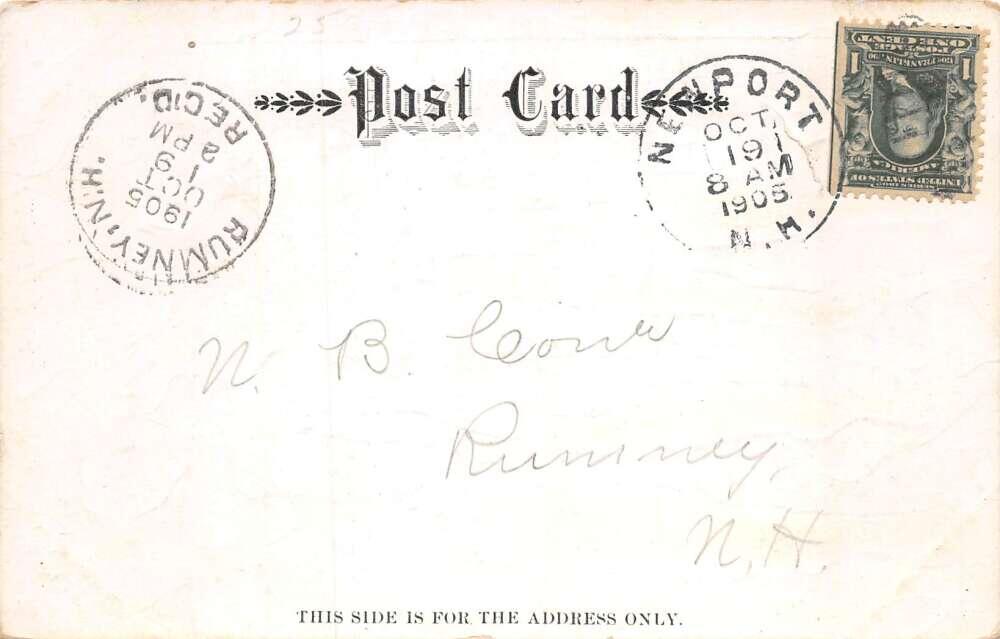 25
Post Card
NEWPORT
OCT
191
8 AM
1905
N.H.
POSTAGE
ONE CENT
1 FRANKLIN 1
UNITED STATES OF
AMERICA
RUMNEY, N.H.
1905
OCT
19
2 PM
REC'D.
N. B.
Rumney,
N.H.
THIS SIDE IS FOR THE ADDRESS ONLY.